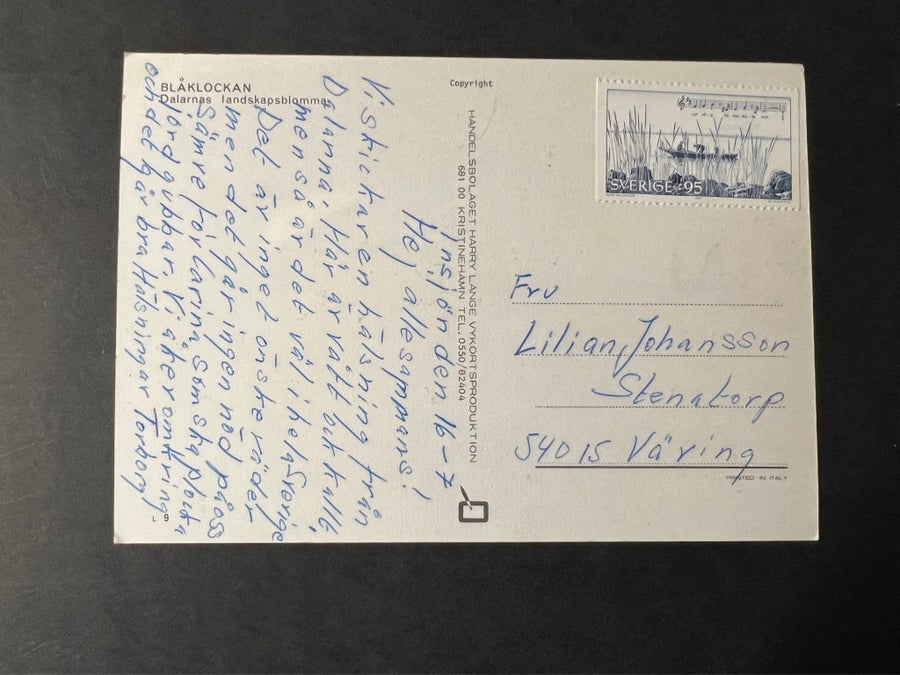 BLÅKLOCKAN
Dalarnas landskapsblomma
Copyright
HANDELSBOLAGET HARRY LANGE VYKORTSPRODUKTION
681 00 KRISTINEHAMN TEL. 0550/82404
SVERIGE 95
Insjön den 16-7
Hej allesammans!
Vi skickar en hälsning från
Dalarna. Här är vått och kallt
men så är det väl i hela Sverige
Det är inget önskeväder
men det går ingen nöd på oss
Sämre för Carina som ska plocka
jordgubbar. Vi åker omkring
och det går bra Hälsningar Torborg
L 9
Fru
Lilian Johansson
Stenatorp
54015 Väring
PRINTED IN ITALY